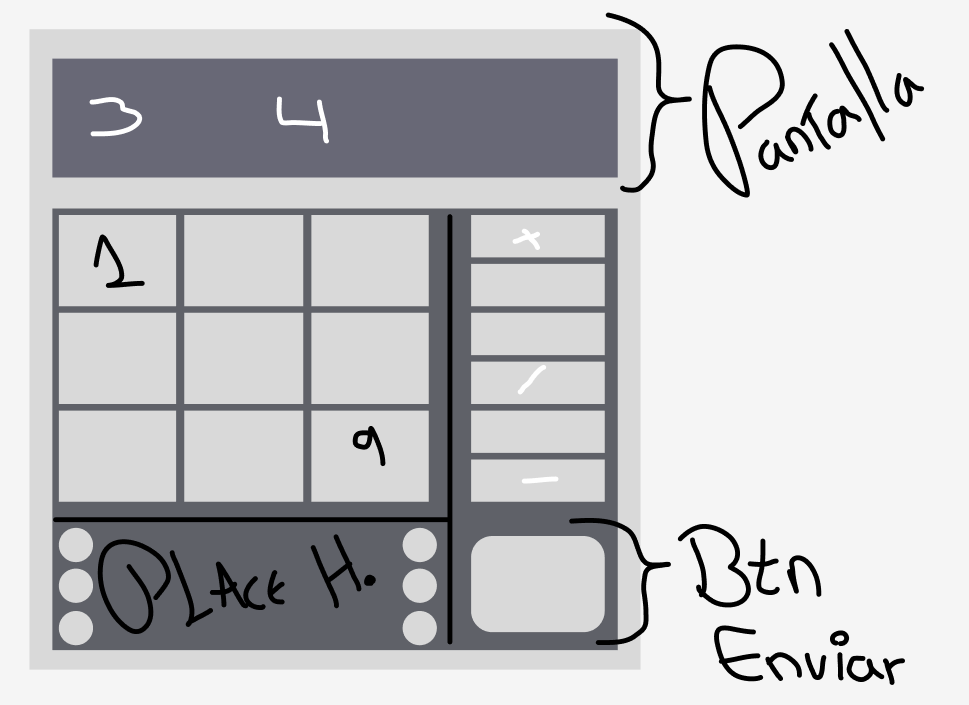 3 4
Pantalla
1
+
/
9
-
PLACE H.
Btn
Enviar